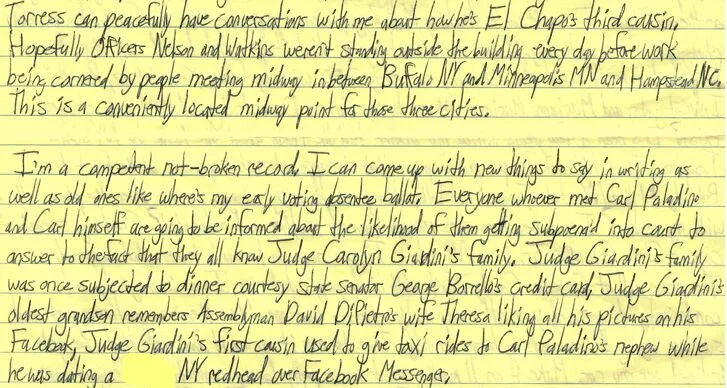 Torress can peacefully have conversations with me about how he's El Chapo's third cousin.
Hopefully Officers Nelson and Watkins weren't standing outside the building every day before work
being cornered by people meeting midway in between Buffalo NY and Minneapolis MN and Hampstead NC.
This is a conveniently located midway point for those three cities.
I'm a competent not-broken record, I can come up with new things to say in writing as
well as old ones like where's my early voting absentee ballot. Everyone whoever met Carl Paladino
and Carl himself are going to be informed about the likelihood of them getting subpoena'd into court to
answer to the fact that they all know Judge Carolyn Giardini's family. Judge Giardini's family
was once subjected to dinner courtesy state senator George Borrello's credit card, Judge Giardini's
oldest grandson remembers Assemblyman David DiPietro's wife Theresa liking all his pictures on his
Facebook, Judge Giardini's first cousin used to give taxi rides to Carl Paladino's nephew while
he was dating a NY redhead over Facebook Messenger.